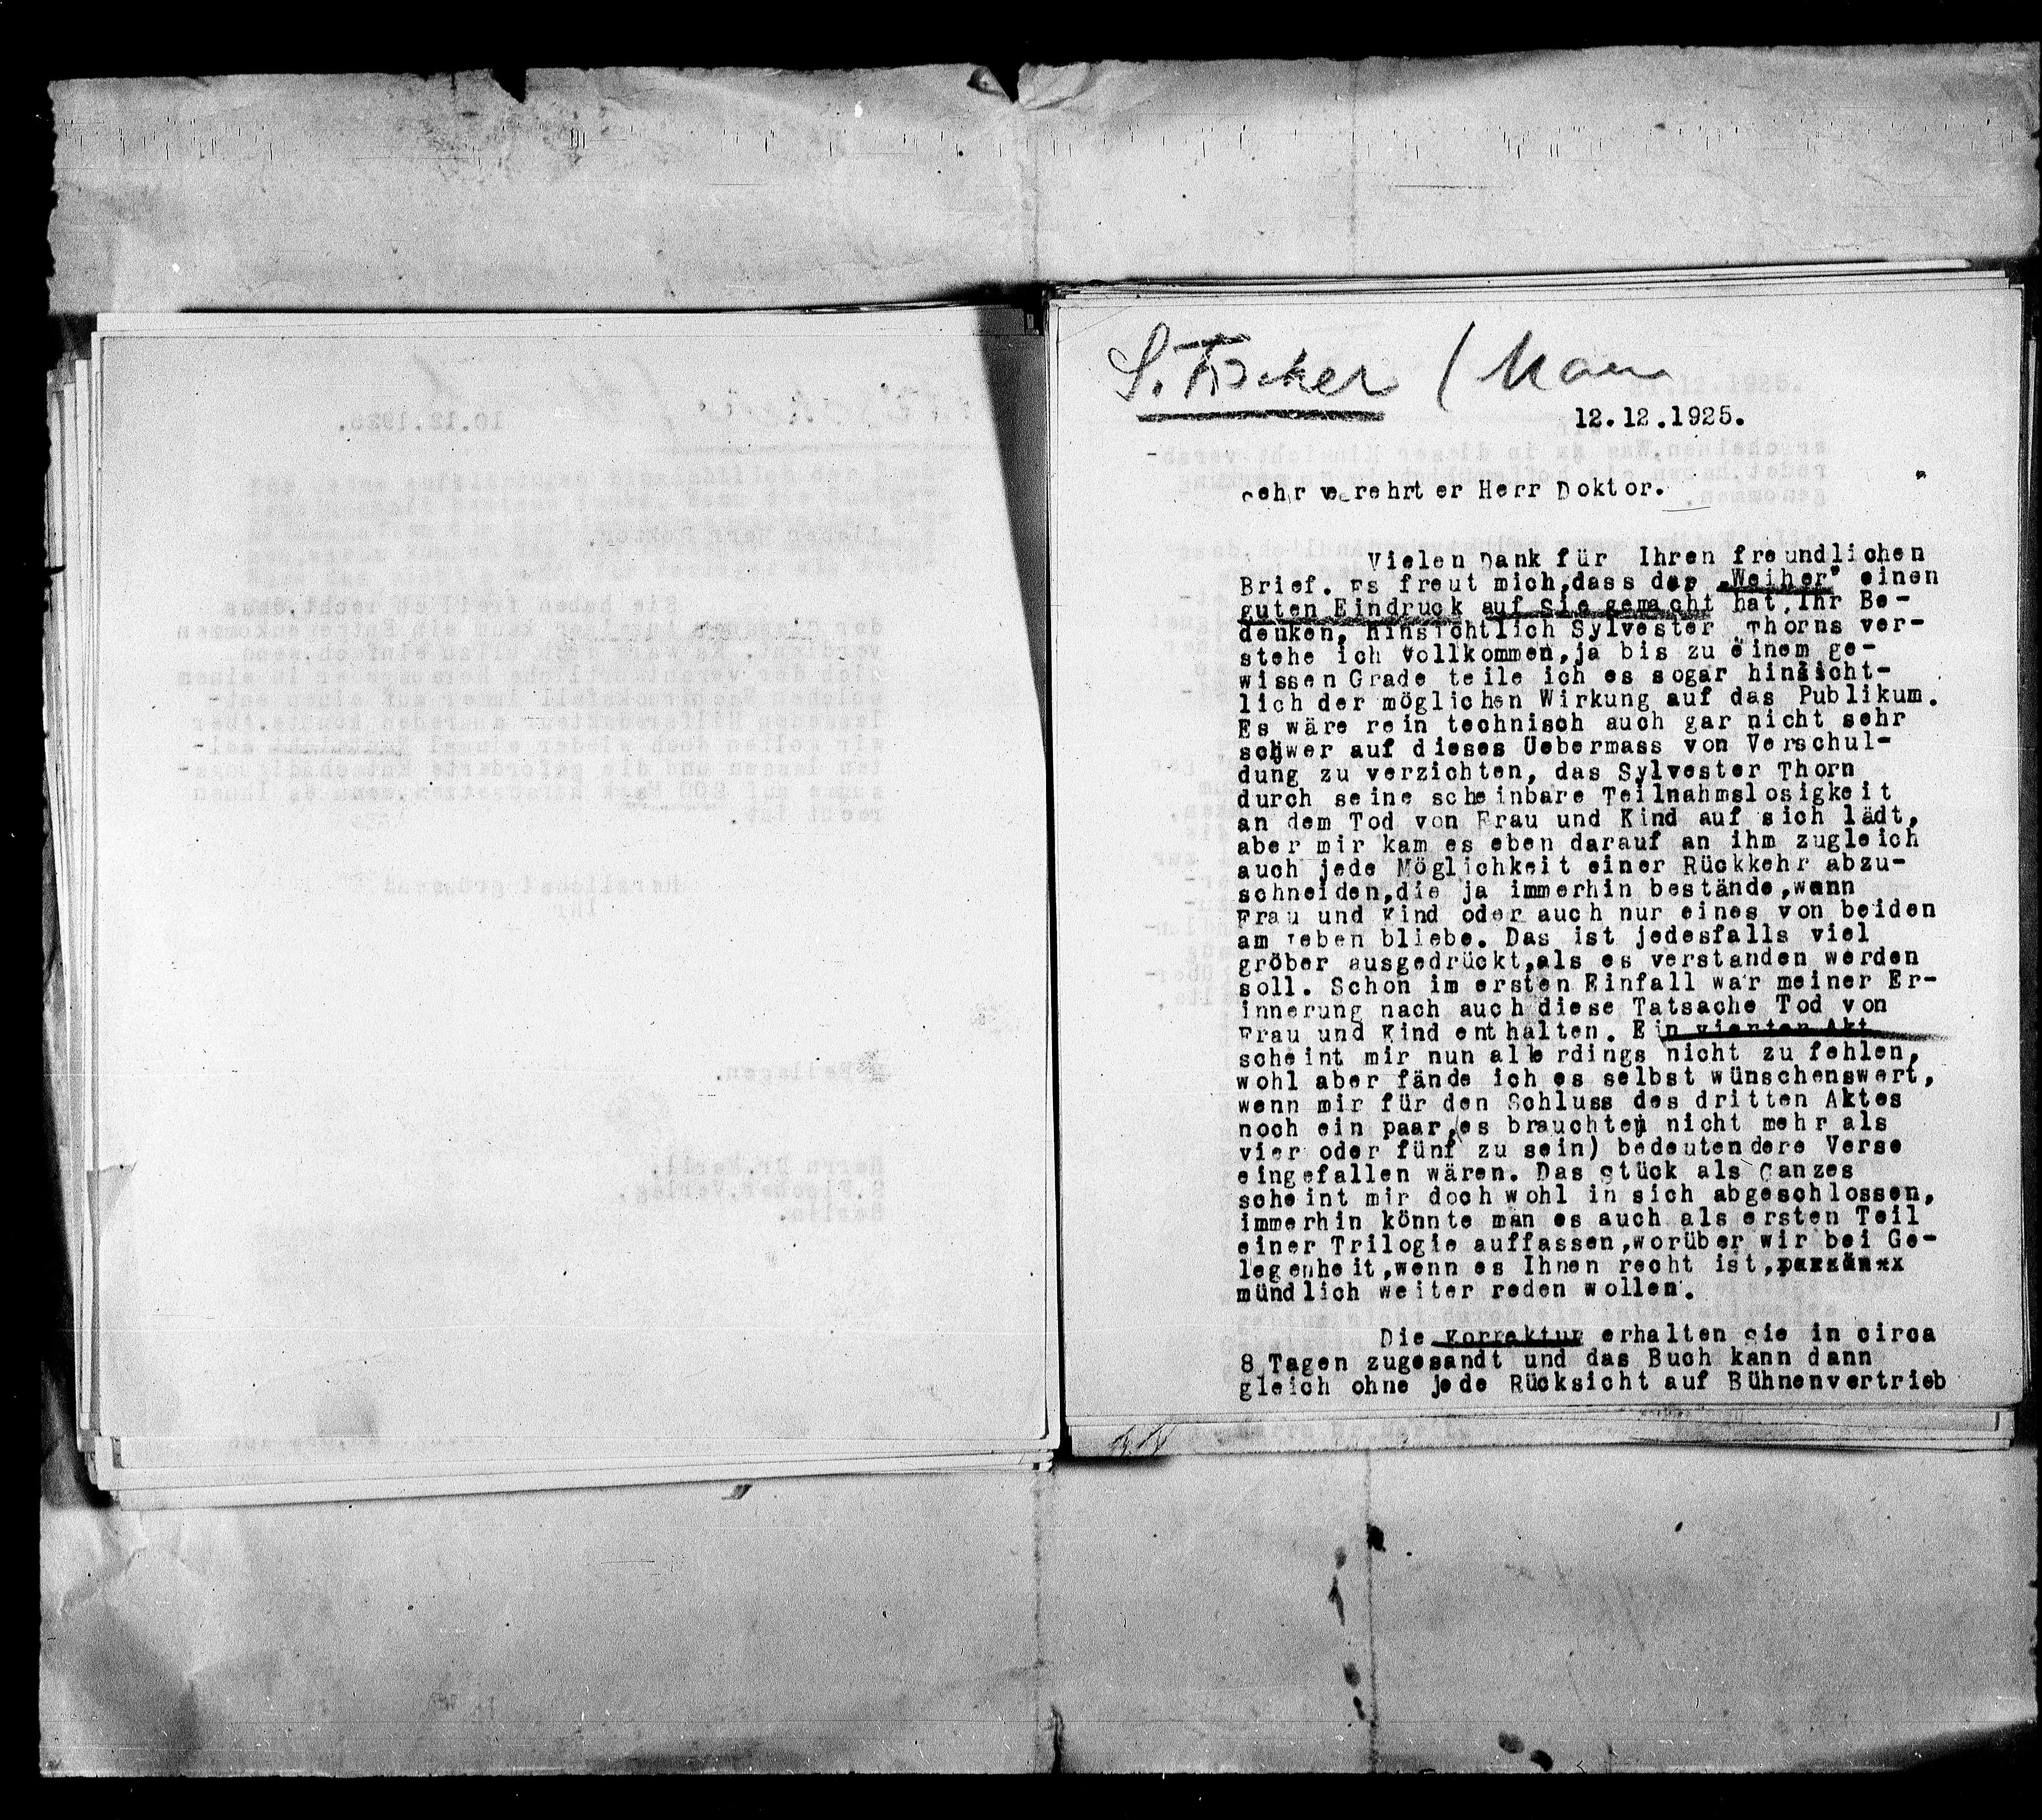 S. Fischer /
12.12.1925.
Sehr verehrter Herr Doktor.
Vielen Dank für Ihren freundlichen
Brief. Es freut mich,dass der „Weiher" einen
guten Eindruck auf Sie gemacht hat. Ihr Be-
denken, hinsichtlich Sylvester Thorns ver-
stehe ich vollkommen,ja bis zu einem ge-
wissen Grade teile ich es sogar hinsicht-
lich der möglichen Wirkung auf das Publikum.
Es wäre rein technisch auch gar nicht sehr
schwer auf dieses Uebermass von Verschul-
dung zu verzichten, das Sylvester Thorn
durch seine scheinbare Teilnahmslosigkeit
an dem Tod von Frau und Kind auf sich lädt,
aber mir kam es eben darauf an ihm zugleich
auch jede Möglichkeit einer Rückkehr abzu-
schneiden,die ja immerhin bestände,wenn
Frau und Kind oder auch nur eines von beiden
am Leben bliebe. Das ist jedesfalls viel
gröber ausgedrückt,als es verstanden werden
soll. Schon im ersten Einfall war meiner Er-
innerung nach auch diese Tatsache Tod von
Frau und Kind enthalten. Ein vierter Akt
scheint mir nun allerdings nicht zu fehlen,
wohl aber fände ich es selbst wünschenswert,
wenn mir für den Schluss des dritten Aktes
noch ein paar,(es brauchten nicht mehr als
vier oder fünf zu sein) bedeutendere Verse
eingefallen wären. Das Stück als Ganzes
scheint mir doch wohl in sich abgeschlossen,
immerhin könnte man es auch als ersten Teil
einer Trilogie auffassen,worüber wir bei Ge-
legenheit,wenn es Ihnen recht ist,
mündlich weiter reden wollen.
Die Korrektur erhalten Sie in circa
8 Tagen zugesandt und das Buch kann dann
gleich ohne jede Rücksicht auf Bühnenvertrieb